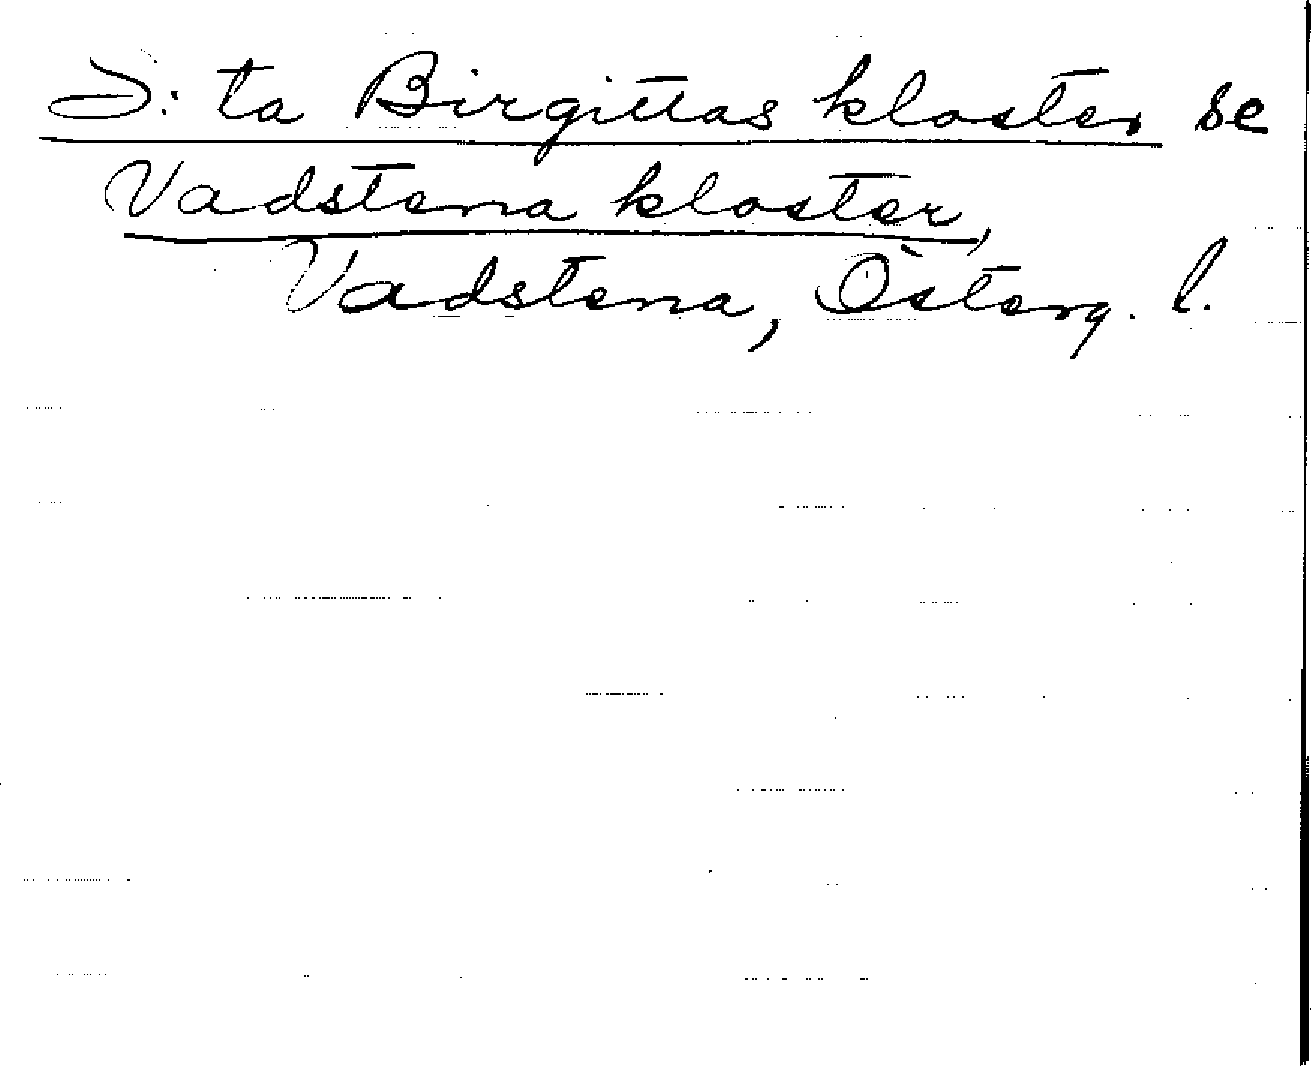 S:ta Birgittas kloster se
Vadstena kloster,
Vadstena, Österg. l.